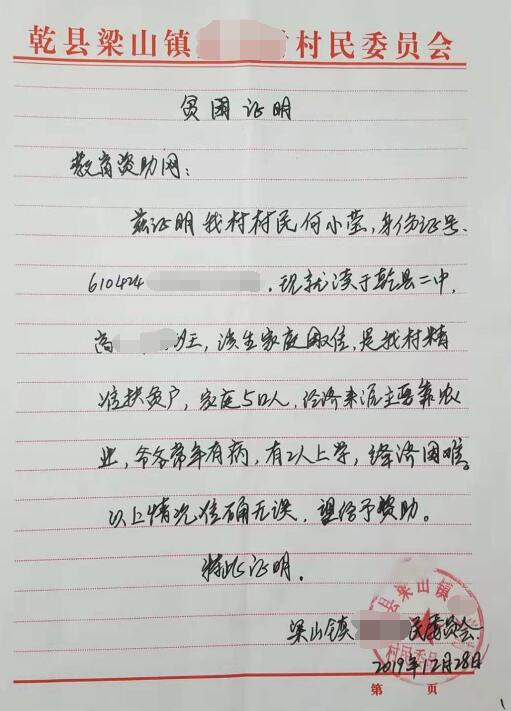 乾县梁山镇 村民委员会
贫困证明
教育资助网：
兹证明我村村民何小莹，身份证号
610424 ，现就读于乾县二中，
高 班，该生家庭困难，是我村精
准扶贫户，家庭5口人，经济来源主要靠农
业，爷爷常年有病，有2人上学，经济困难。
以上情况准确无误，望给予资助。
特此证明。
梁山镇 民委员会
2019年12月28日
县梁山镇
村民委员
第 页